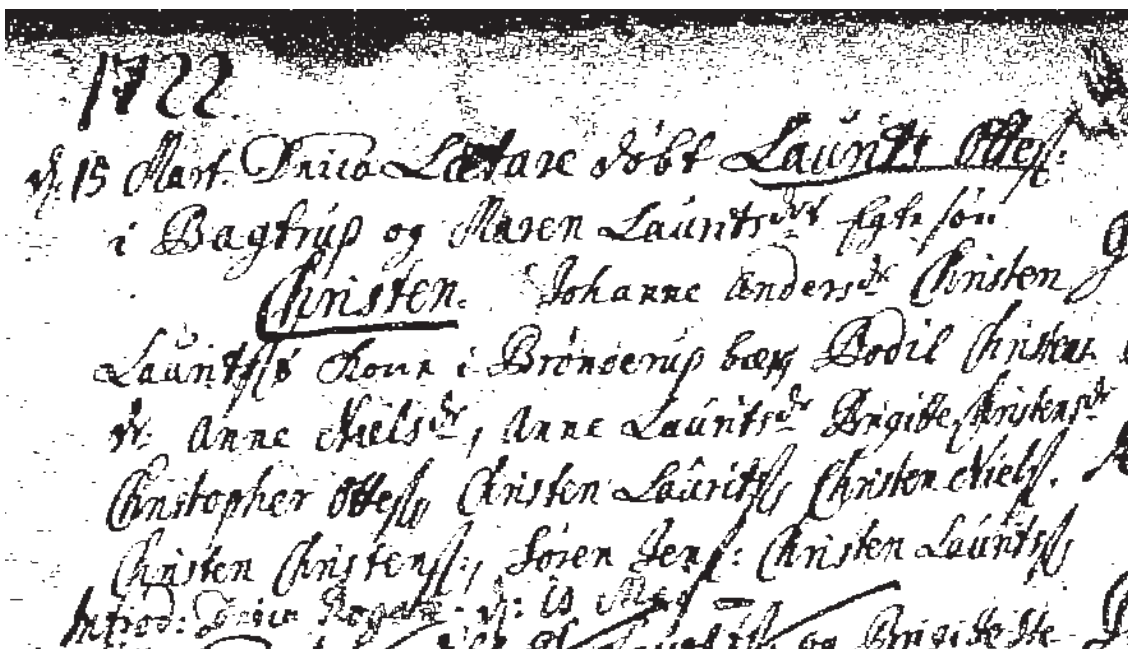 1722.
d: 15 Mart. Dnica Lætare döbt Laurits Otteß:
i Bagtrup og Maren Lauritsdr Egte sön
Christen. Johanne Andersdr Christen
Lauritsß Kone i Brönderup bær, Bodil Christens
dr. Anne Nielsdr, Anne Lauritsdr Brigitte Christensdr
Christopher Otteß, Christen Lauritsß, Christen Nielß.
Christen Christenß:, Sören Jenß: Christen Lauritsß,
Introd: Dnica Rogate d: 10 May
og Brigitte